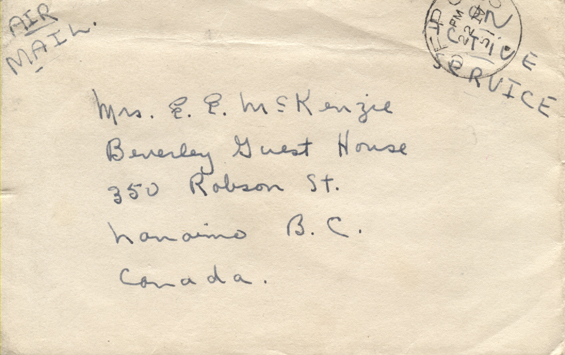 AIR
MAIL.
ON
ACTIVE
SERVICE
PM
Mrs. E. E. McKenzie
Beverley Guest House
350 Robson St.
Nanaimo B.C.
Canada.